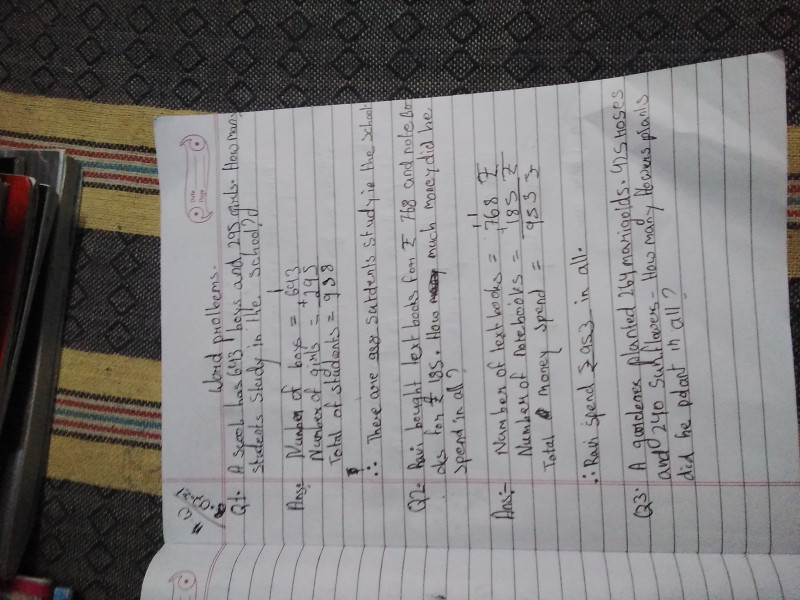 Date
Page
Word prolbems.
Q1:- A scooh has 643 boys and 295 girls. How many
students study in the school?
Ans:- Number of boys = 643
Number of girls = +295
Total of students = 938
∴ There are students study in the school
Q2:- Ravi bought text books for ₹ 768 and notebo
oks for ₹ 185. How much money did he
spend in all?
Ans:- Number of textbooks = 768 ₹
Number of notebooks = +185 ₹
Total money spend = 953 ₹
∴ Ravi spend ₹ 953 in all.
Q3:- A gardener planted 264 marigolds. 475 roses
and 240 sunflower. How many flowers plants
did he plant in all?